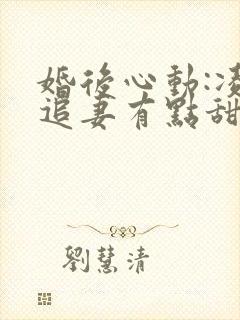 婚後心動:凌
追妻有點甜
劉慧清